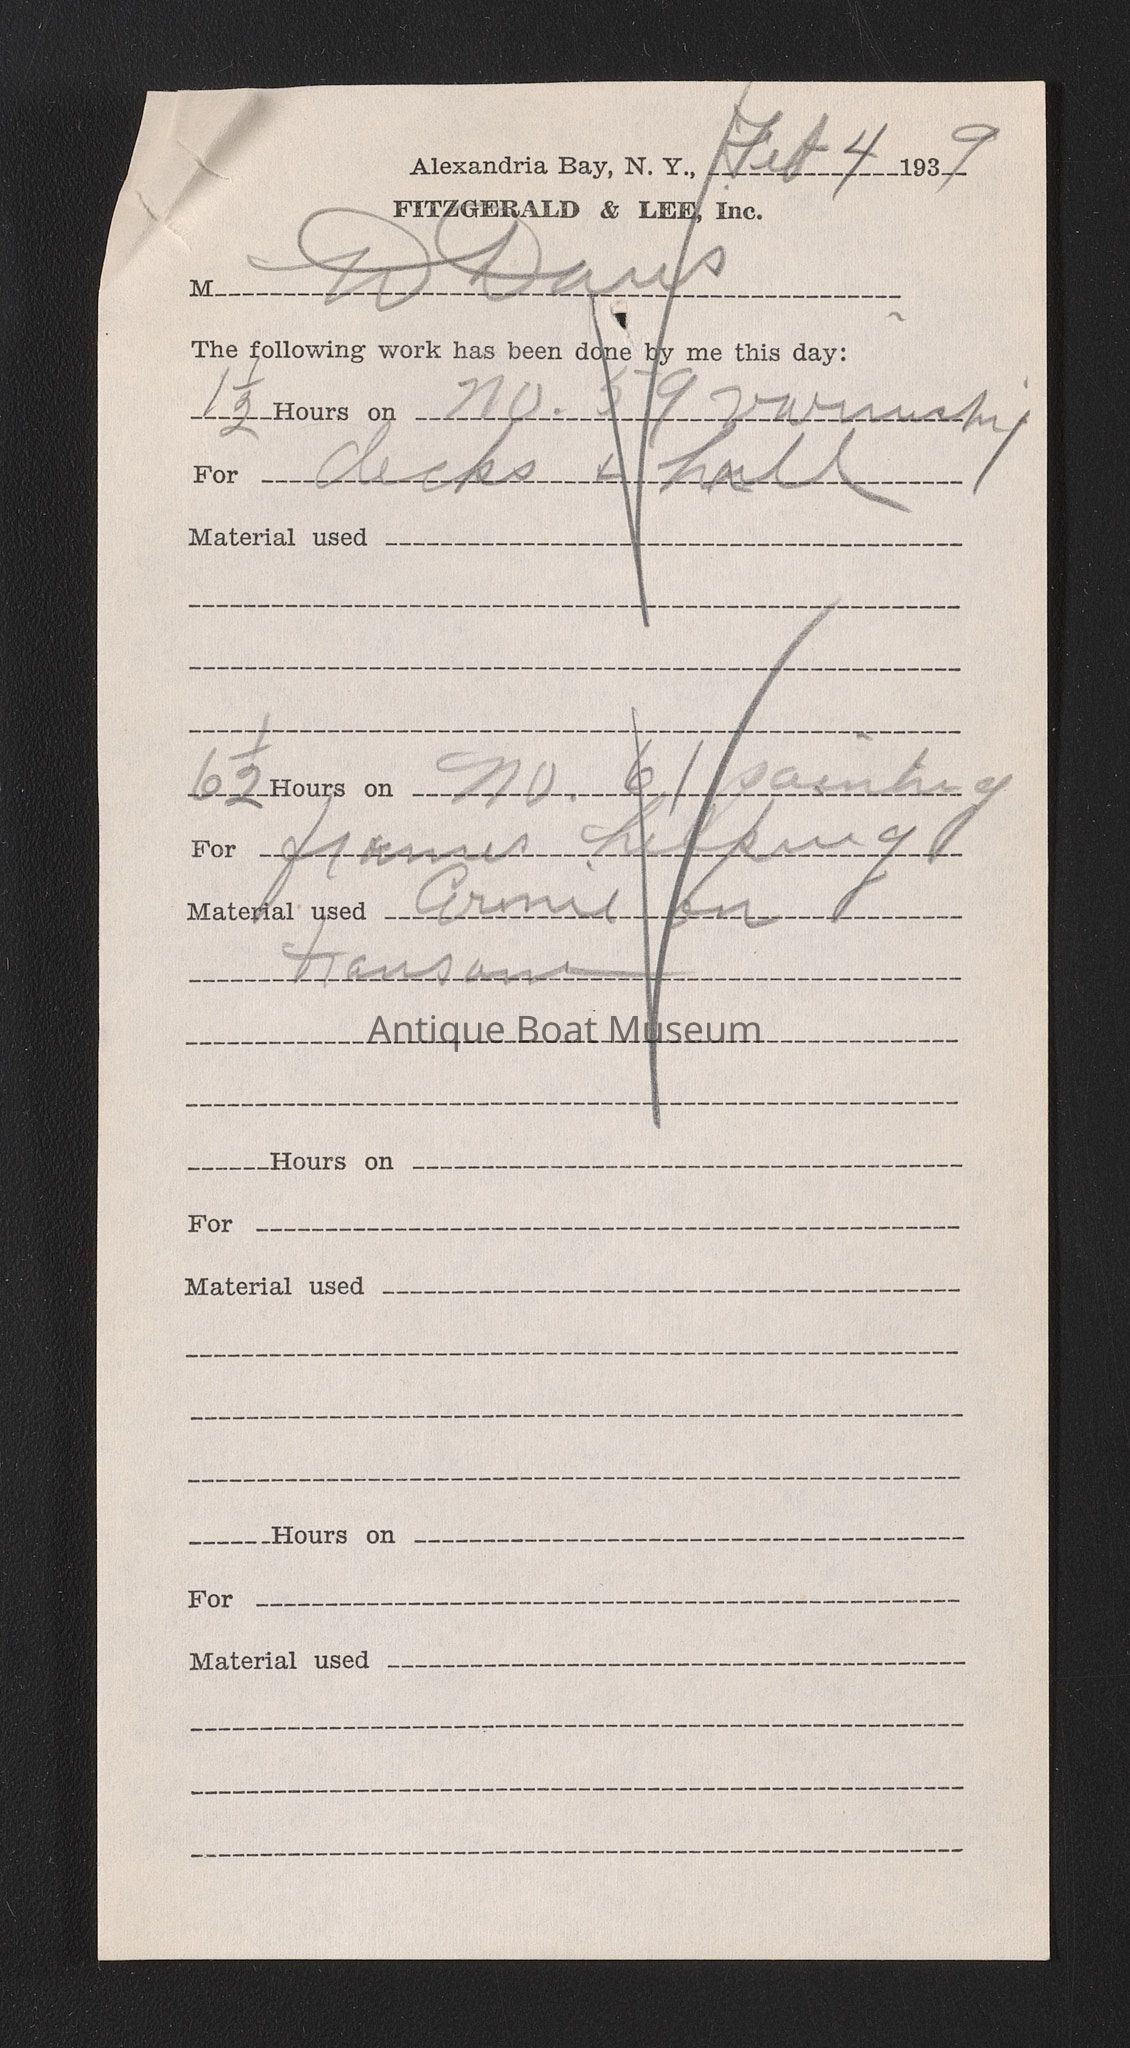 Alexandria Bay, N. Y., Feb 4 1939
FITZGERALD & LEE, Inc.
M W Davis
The following work has been done by me this day:
1 1/2 Hours on No. 59 varnishing
For decks & hull
Material used
6 1/2 Hours on No. 61 painting
For frames helping
Material used Ernie on
transom
Antique Boat Museum
Hours on
For
Material used
Hours on
For
Material used